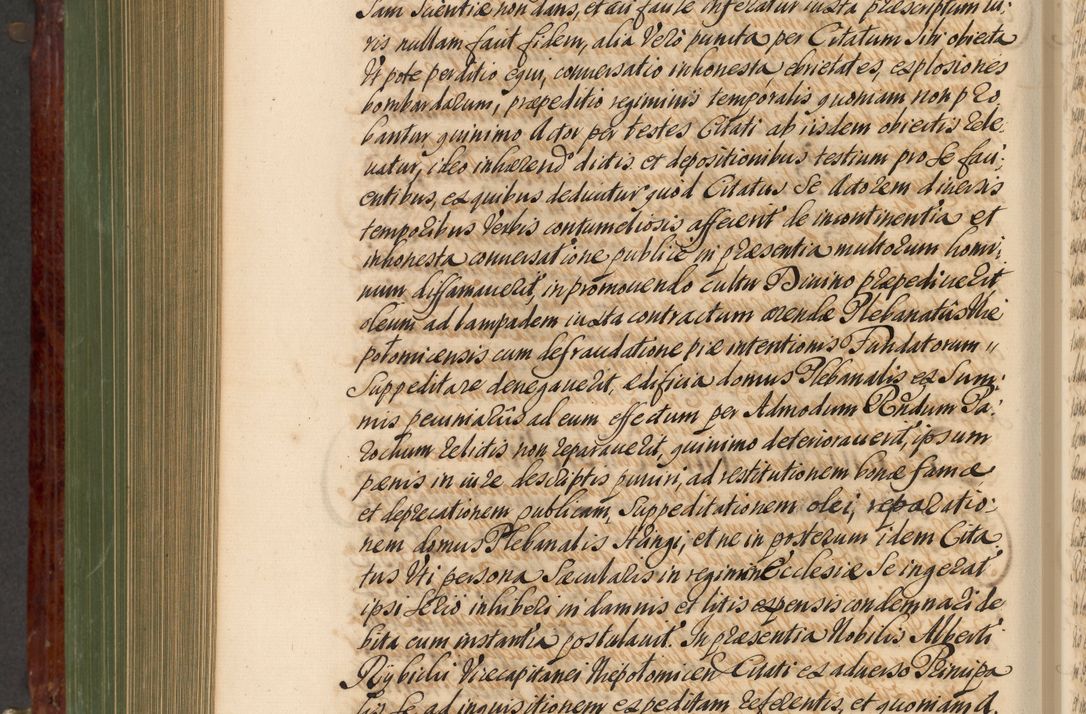 sam Scientiæ non dans, et au faute inferatur iuxta præscriptum iu:
ris nullam faut fidem, alia Verò puncta per Citatum Sibi obiecta
Ut pote perditio equi, conversatio inhonesta, ebrietates, explosiones
bombardarum, præpeditio regiminis temporalis quoniam non pro
bantur, quinimo Actor per testes Citati ab iisdem obiectis rele:
vatur, ideo inhærend dictis et depositionibus testium pro se faci:
entibus, ex quibus deducitur quod Citatus Se Actorem diversis
temporibus Verbis contumeliosis affecerit de incontinentia et
inhonesta conversatione publicè in præsentia multorum homi:
num diffamaverit, in promovendo cultu Divino præpediverit
oleum ad lampadem iuxta contractum arendæ Plebanatûs Nie
potomicensis cum defraudatione piæ intentionis Fundatorum
Suppeditare denegaverit, ædificia domus Plebanalis ex Sum:
mis pecuniariis ad eum effectum per Admodum Rndum Pa:
rochum relictis non reparaverit, quinimo deterioraverit, ipsum
pænis in iure descriptis puniri, ad restitutionem bonæ famæ
et deprecationem publicam, Suppeditationem olei, reparatio:
nem domus Plebanalis Stringi, et ne in posterum idem Cita
tus Uti persona Sæcularis in regimen Ecclesiæ Se ingerat
ipsi Serio inhiberi in damnis et litis expensis condemnari de
bita cum instantia postulavit. In præsentia Nobilis Alberti
Rybicki Vicecapitanei Niepolomicen Citati ex adverso Principa
lis Se ad inquisitionem expeditam referentis, et quoniam A.